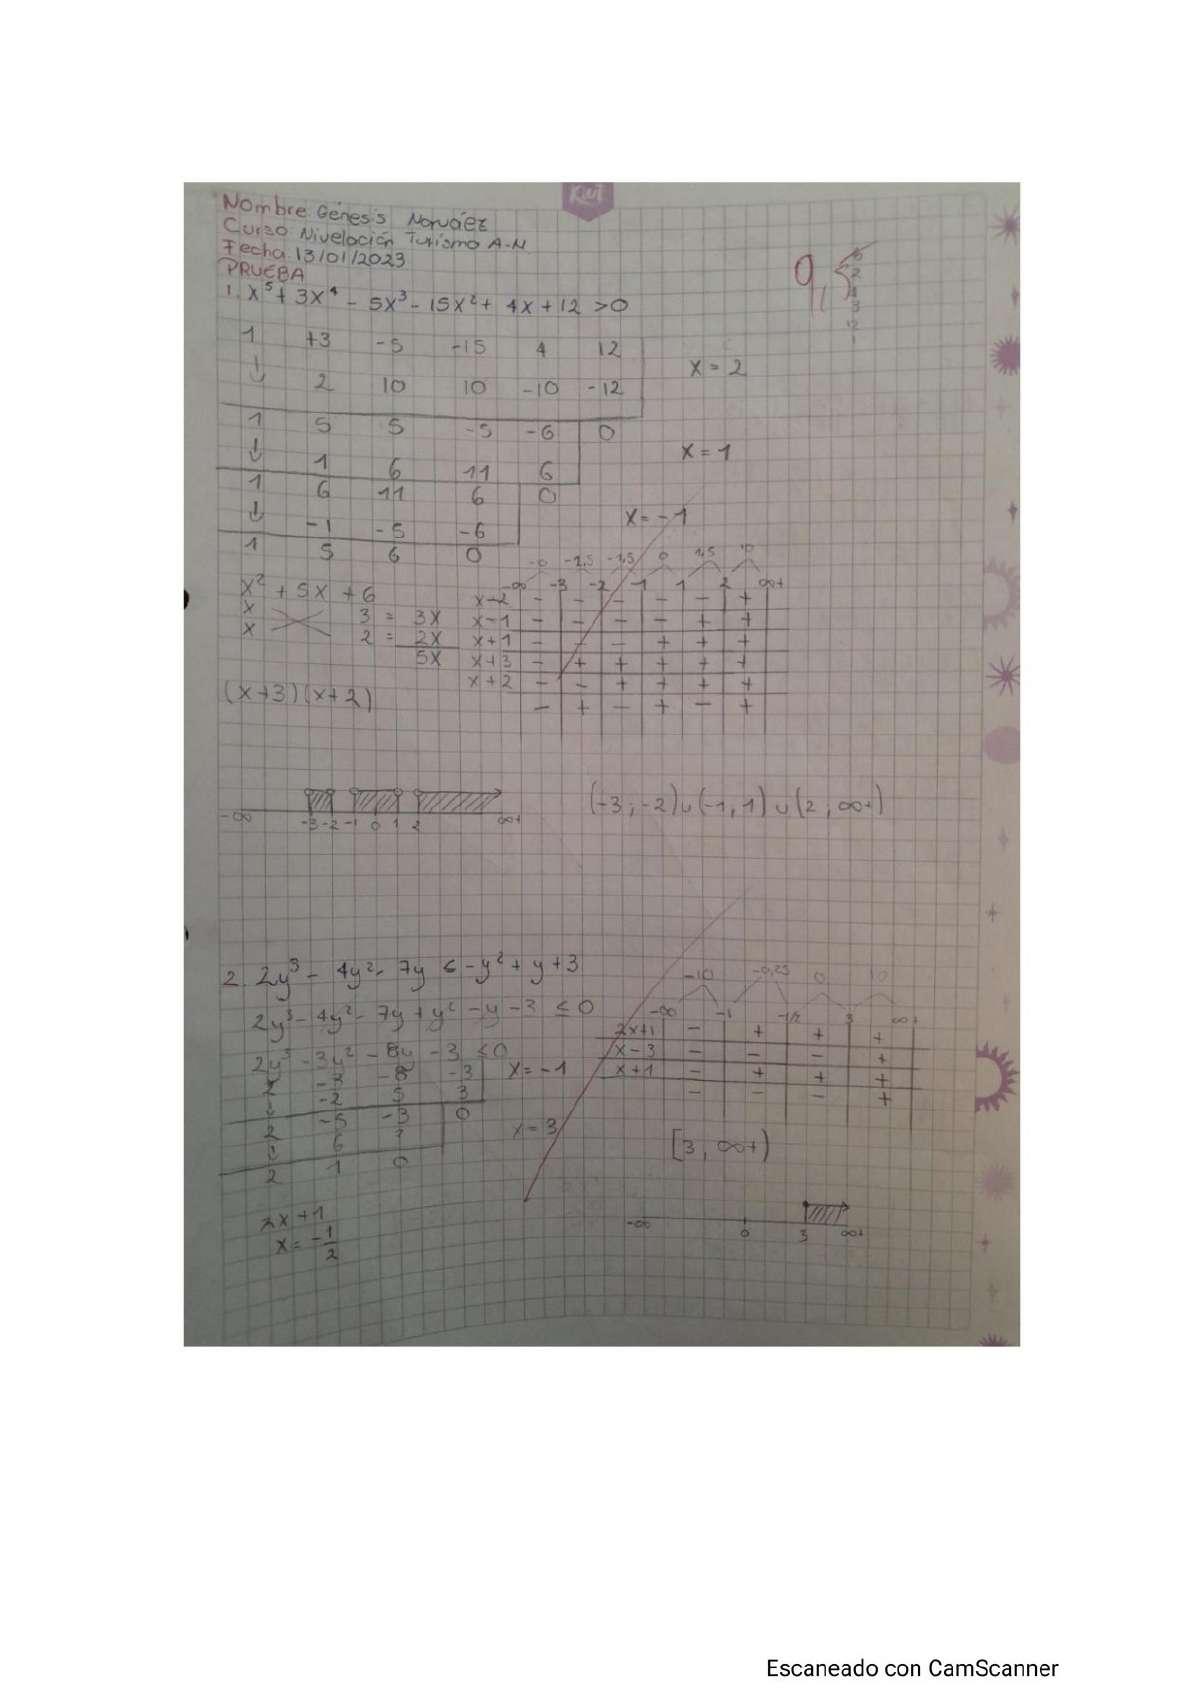 Kut
Nombre Génesis Narváez
Curso Nivelación Turismo A-N
Fecha 13/01/2023
PRUEBA
9,5
1. x⁵ + 3x⁴ - 5x³ - 15x² + 4x + 12 > 0
1 +3 -5 -15 4 12
2 10 10 -10 -12
x = 2
1 5 5 -5 -6 0
1 6 11 6
x = 1
1 6 11 6 0
-1 -5 -6
x = -1
1 5 6 0
x² + 5x + 6
x 3 = 3x
x 2 = 2x
5x
(x+3)(x+2)
-∞ -3 -2 -1 1 2 ∞+
x-2 - - - - - +
x-1 - - - - + +
x+1 - - - + + +
x+3 - + + + + +
x+2 - - + + + +
- + - + - +
-∞ -3 -2 -1 0 1 2 ∞+
(-3; -2) ∪ (-1, 1) ∪ (2, ∞+)
2. 2y³ - 4y² - 7y ≤ -y² + y + 3
2y³ - 4y² - 7y + y² - y - 3 ≤ 0
2y³ - 3y² - 8y - 3 ≤ 0
2 -3 -8 -3
x = -1
-2 5 3
2 -5 -3 0
6 3
x = 3
2 1 0
2x + 1
x = -1/2
-10 -0,25 0 10
-∞ -1 -1/2 3 ∞+
2x+1 - + + +
x-3 - - - +
x+1 - + + +
- - - +
[3, ∞+)
-∞ 0 3 ∞+
Escaneado con CamScanner